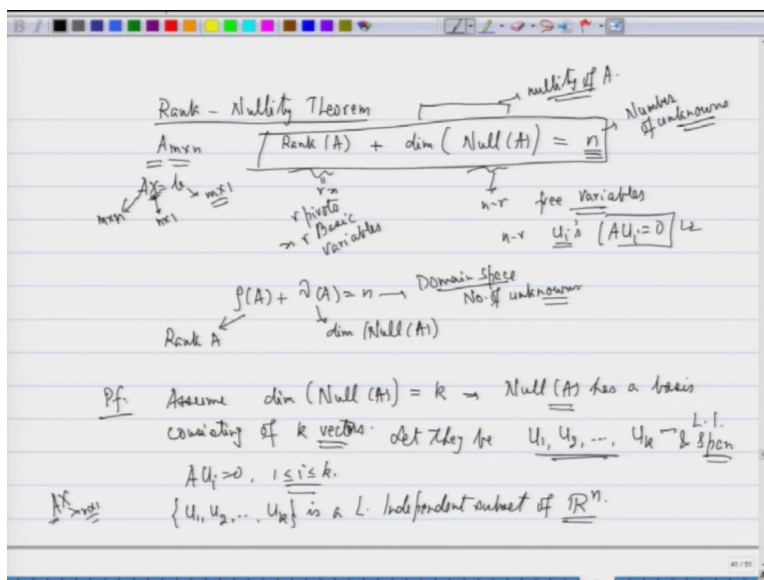 B I
nullity of A.
Rank - Nullity Theorem
Number of unknowns
A m×n
Rank (A) + dim ( Null (A) ) = n
AX = b
m×n n×1 m×1
r
r pivots
r Basic
variables
n-r free variables
n-r Ui's (AUi=0)
ρ(A) + ν(A) = n → Domain space
No. of unknowns
Rank A
dim (Null (A))
Pf: Assume dim (Null (A)) = k → Null (A) has a basis
consisting of k vectors. Let they be U1, U2, ..., Uk L.I. & Span
AUi=0, 1≤i≤k.
AX n×1
{U1, U2, ..., Uk} is a L. Independent subset of ℝⁿ.
41 / 51